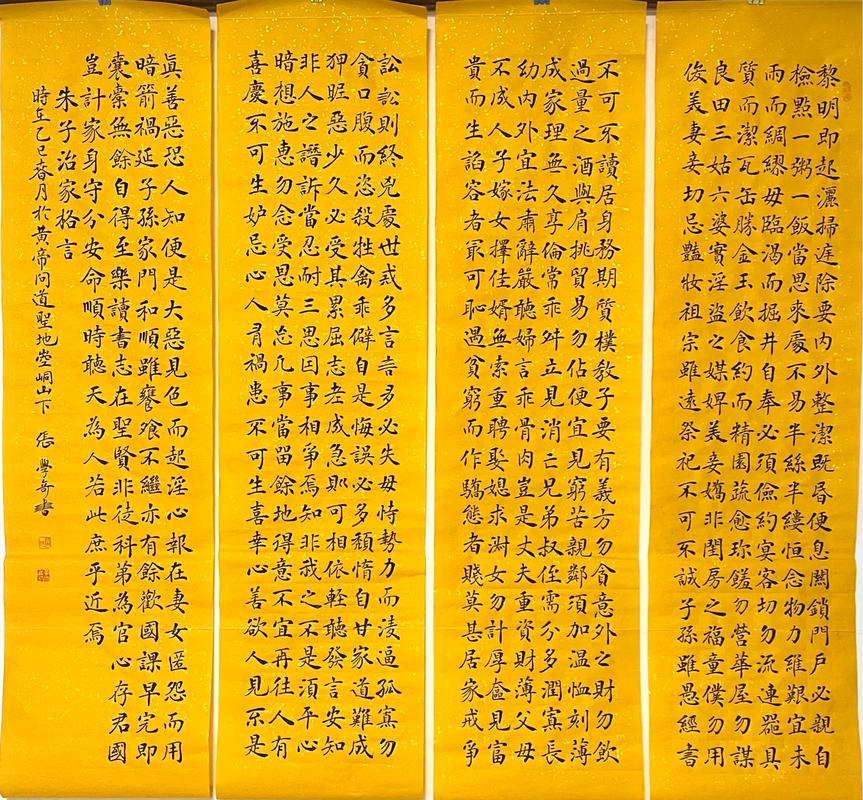 黎明即起灑掃庭除要內外整潔既昏便息關鎖門戶必親自
檢點一粥一飯當思來處不易半絲半縷恒念物力維艱宜未
雨而綢繆毋臨渴而掘井自奉必須儉約宴客切勿流連器具
質而潔瓦缶勝金玉飲食約而精園蔬愈珍饈勿營華屋勿謀
良田三姑六婆實淫盜之媒婢美妾嬌非閨房之福童僕勿用
俊美妻妾切忌豔妝祖宗雖遠祭祀不可不誠子孫雖愚經書
不可不讀居身務期質樸教子要有義方勿貪意外之財勿飲
過量之酒與肩挑貿易勿佔便宜見窮苦親鄰須加温恤刻薄
成家理無久享倫常乖舛立見消亡兄弟叔侄需分多潤寡長
幼內外宜法肅辭嚴聽婦言乖骨肉豈是丈夫重資財薄父母
不成人子嫁女擇佳婿無索重聘娶媳求淑女勿計厚奩見富
貴而生諂容者最可恥過貧窮而作驕態者賤莫甚居家戒爭
訟訟則終兇處世戒多言言多必失毋恃勢力而淩逼孤寡勿
貪口腹而恣殺牲禽乖僻自是悔誤必多頹惰自甘家道難成
狎昵惡少久必受其累屈志老成急則可相依輕聽發言安知
非人之譖訴當忍耐三思因事相爭焉知非我之不是須平心
暗想施惠勿念受恩莫忘凡事當留餘地得意不宜再往人有
喜慶不可生妒忌心人有禍患不可生喜幸心善欲人見不是
真善惡恐人知便是大惡見色而起淫心報在妻女匿怨而用
暗箭禍延子孫家門和順雖饔飧不繼亦有餘歡國課早完即
囊橐無餘自得至樂讀書志在聖賢非徒科第為官心存君國
豈計家身守分安命順時聽天為人若此庶乎近焉
朱子治家格言
時在乙巳春月於黃帝問道聖地崆峒山下 張學奇書